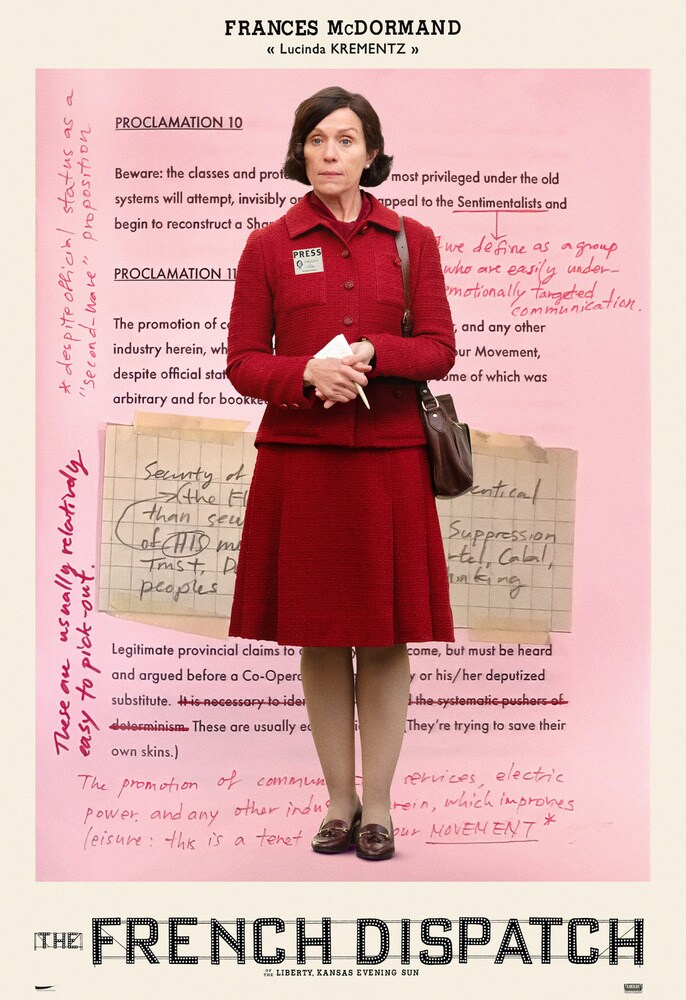 FRANCES McDORMAND
« Lucinda KREMENTZ »
PROCLAMATION 10
Beware: the classes and prote most privileged under the old
systems will attempt, invisibly or appeal to the Sentimentalists and
begin to reconstruct a Sha
we define as a group
who are easily under-
emotionally targeted
communication.
PROCLAMATION 11
The promotion of c , and any other
industry herein, wh our Movement,
despite official stat ome of which was
arbitrary and for bookke
* despite official status as a
"second-wave" proposition
PRESS
Security of entical
the Fl
than secu Suppression
of HIS m rtel, Cabal,
Trust, D inking
peoples
These are usually relatively
easy to pick-out.
Legitimate provincial claims to come, but must be heard
and argued before a Co-Oper y or his/her deputized
substitute. It is necessary to iden d the systematic pushers of
determinism. These are usually ea (They're trying to save their
own skins.)
The promotion of commun services, electric
power, and any other indus rein, which improves
leisure: this is a tenet our MOVEMENT *
THE FRENCH DISPATCH
OF THE LIBERTY, KANSAS EVENING SUN